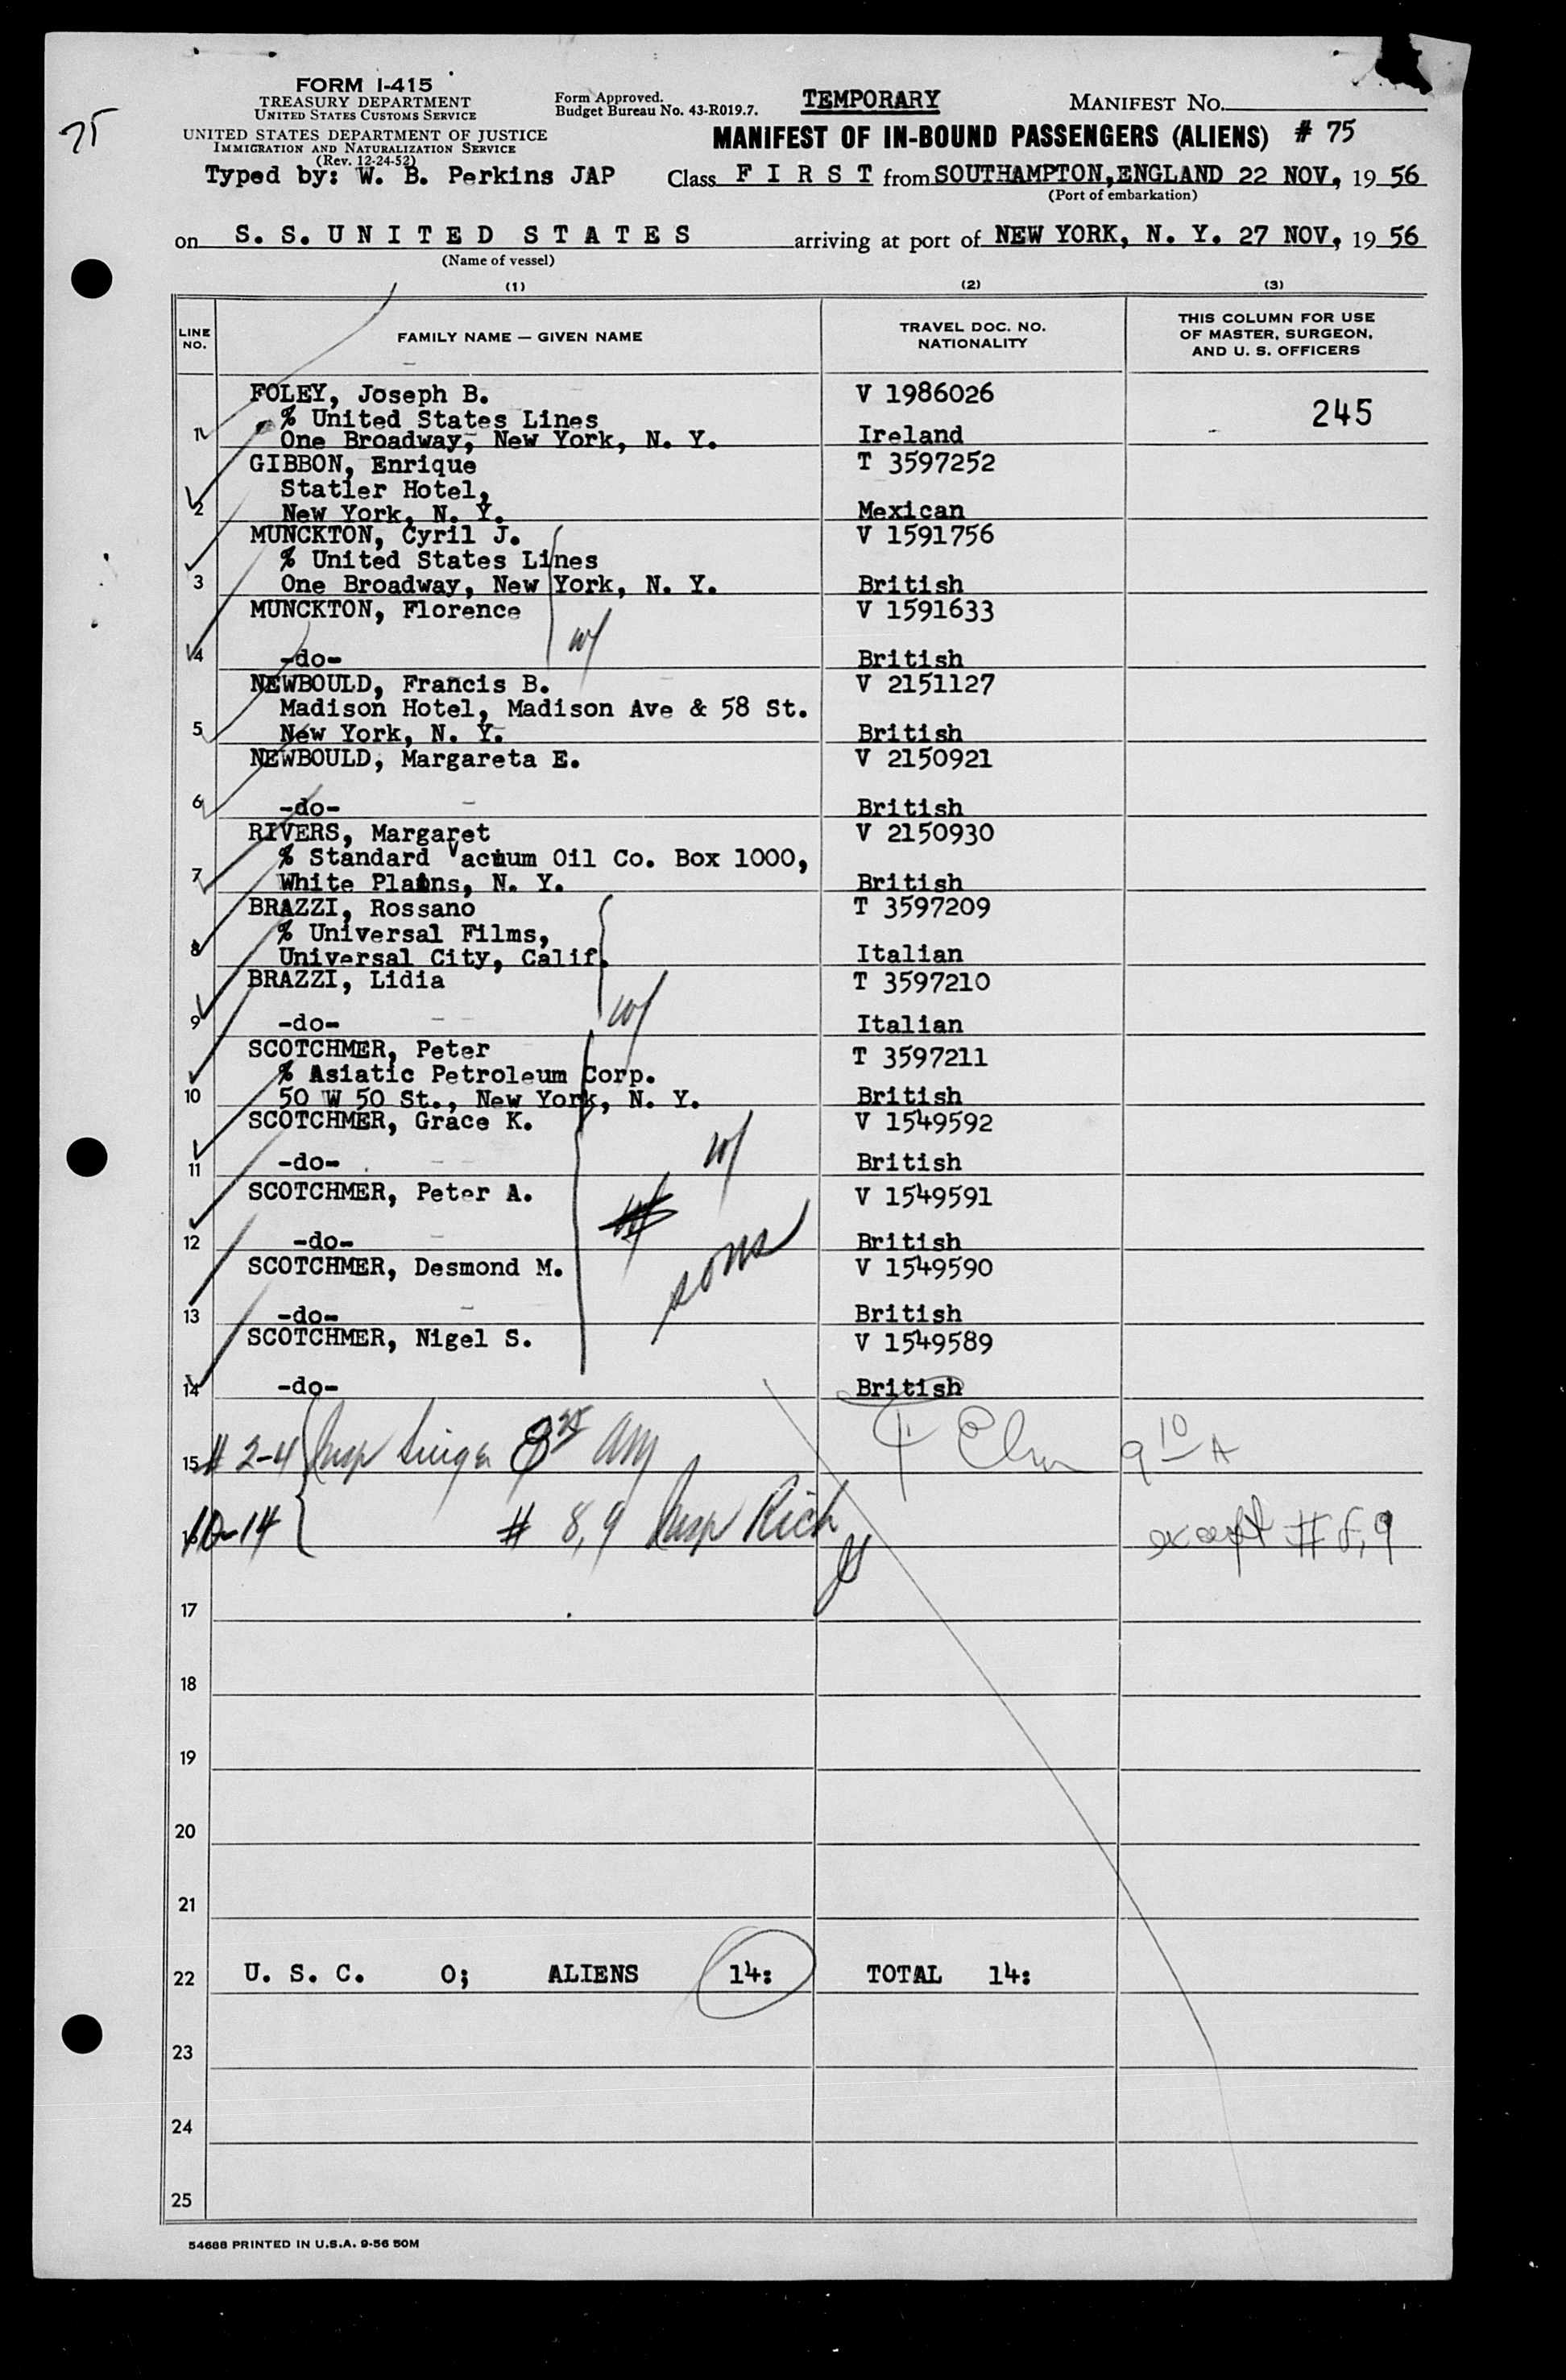 75
FORM I-415
TREASURY DEPARTMENT
UNITED STATES CUSTOMS SERVICE
UNITED STATES DEPARTMENT OF JUSTICE
IMMIGRATION AND NATURALIZATION SERVICE
(Rev. 12-24-52)
Form Approved.
Budget Bureau No. 43-R019.7.
TEMPORARY
MANIFEST NO.
MANIFEST OF IN-BOUND PASSENGERS (ALIENS) # 75
Typed by: W. B. Perkins JAP
Class F I R S T from SOUTHAMPTON, ENGLAND 22 NOV, 19 56
(Port of embarkation)
on S. S. U N I T E D S T A T E S arriving at port of NEW YORK, N. Y. 27 NOV, 19 56
(Name of vessel)
(1) (2) (3)
LINE NO.
FAMILY NAME — GIVEN NAME
TRAVEL DOC. NO.
NATIONALITY
THIS COLUMN FOR USE
OF MASTER, SURGEON,
AND U. S. OFFICERS
FOLEY, Joseph B. V 1986026
% United States Lines 245
1 One Broadway, New York, N. Y. Ireland
GIBBON, Enrique T 3597252
Statler Hotel,
2 New York, N. Y. Mexican
MUNCKTON, Cyril J. V 1591756
% United States Lines
3 One Broadway, New York, N. Y. British
MUNCKTON, Florence V 1591633
w/
4 -do- British
NEWBOULD, Francis B. V 2151127
Madison Hotel, Madison Ave & 58 St.
5 New York, N. Y. British
NEWBOULD, Margareta E. V 2150921
6 -do- British
RIVERS, Margaret V 2150930
% Standard Vacuum Oil Co. Box 1000,
7 White Plains, N. Y. British
BRAZZI, Rossano T 3597209
% Universal Films,
8 Universal City, Calif. Italian
BRAZZI, Lidia T 3597210
w/
9 -do- Italian
SCOTCHMER, Peter T 3597211
% Asiatic Petroleum Corp.
10 50 W 50 St., New York, N. Y. British
SCOTCHMER, Grace K. V 1549592
w/
11 -do- British
SCOTCHMER, Peter A. V 1549591
12 -do- British
SCOTCHMER, Desmond M. V 1549590
sons
13 -do- British
SCOTCHMER, Nigel S. V 1549589
14 -do- British
15 # 2-4 Insp 8 25 AM 9 10 A
16 10-14 # 8,9 Insp Rich except # 8,9
17
18
19
20
21
22 U. S. C. 0; ALIENS 14: TOTAL 14:
23
24
25
54688 PRINTED IN U.S.A. 9-56 50M